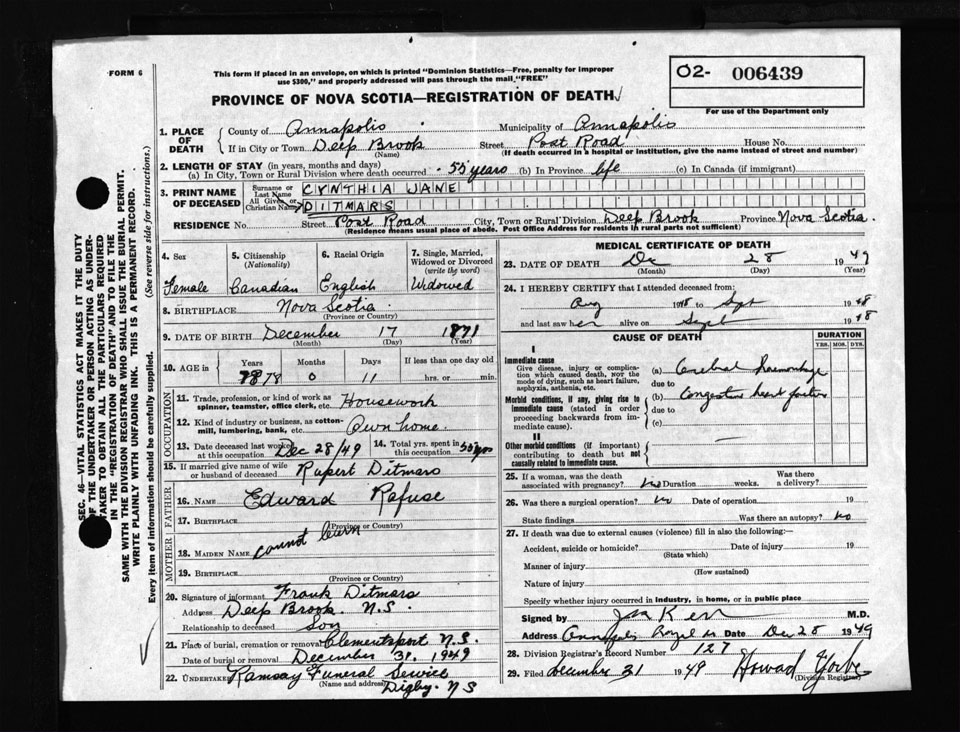 FORM 6
This form if placed in an envelope, on which is printed "Dominion Statistics—Free, penalty for improper
use $300," and properly addressed will pass through the mail "FREE"
02- 006439
For use of the Department only
PROVINCE OF NOVA SCOTIA—REGISTRATION OF DEATH
1. PLACE OF DEATH
County of Annapolis Municipality of Annapolis
If in City or Town Deep Brook Street Post Road House No.
(Name) (If death occurred in a hospital or institution, give the name instead of street and number)
2. LENGTH OF STAY (in years, months and days)
(a) In City, Town or Rural Division where death occurred 55 years (b) In Province life (c) In Canada (if immigrant)
3. PRINT NAME OF DECEASED
Surname or Last Name CYNTHIA JANE
All Given or Christian Names DITMARS
RESIDENCE No. Street Post Road City, Town or Rural Division Deep Brook Province Nova Scotia.
(Residence means usual place of abode. Post Office Address for residents in rural parts not sufficient)
4. Sex
Female
5. Citizenship
(Nationality)
Canadian
6. Racial Origin
English
7. Single, Married,
Widowed or Divorced
(write the word)
Widowed
8. BIRTHPLACE Nova Scotia
(Province or Country)
9. DATE OF BIRTH December 17 1871
(Month) (Day) (Year)
10. AGE in
Years Months Days If less than one day old
78 0 11 hrs. or min.
OCCUPATION
11. Trade, profession, or kind of work as
spinner, teamster, office clerk, etc. Housework
12. Kind of industry or business, as cotton-
mill, lumbering, bank, etc. Own home.
13. Date deceased last worked
at this occupation Dec 28/49
14. Total yrs. spent in
this occupation 50 yrs
15. If married give name of wife
or husband of deceased Rupert Ditmars
FATHER
16. NAME Edward Refuse
17. BIRTHPLACE
(Province or Country)
MOTHER
18. MAIDEN NAME cannot learn
19. BIRTHPLACE
(Province or Country)
20. Signature of informant Frank Ditmars
Address Deep Brook. N.S.
Relationship to deceased Son
21. Place of burial, cremation or removal Clementsport N.S.
Date of burial or removal December 31. 1949
22. UNDERTAKER Ramsay Funeral Service
(Name and address) Digby. N S
MEDICAL CERTIFICATE OF DEATH
23. DATE OF DEATH 28 1949
(Month) (Day) (Year)
24. I HEREBY CERTIFY that I attended deceased from:
Aug 1948 to Sept 1948
and last saw her alive on Sept 1948
CAUSE OF DEATH
DURATION
YRS. MOS. DYS.
I
Immediate cause
Give disease, injury or complica-
tion which caused death, NOT the
mode of dying, such as heart failure,
asphyxia, asthenia, etc.
(a) Cerebral haemorrhage
due to
Morbid conditions, if any, giving rise to
immediate cause (stated in order
proceeding backwards from im-
mediate cause).
(b) Congestive heart failure
due to
(c)
II
Other morbid conditions (if important)
contributing to death but not
causally related to immediate cause.
25. If a woman, was the death
associated with pregnancy? No Duration weeks. Was there
a delivery?
26. Was there a surgical operation? No Date of operation 19
State findings Was there an autopsy? No
27. If death was due to external causes (violence) fill in also the following:—
Accident, suicide or homicide? Date of injury 19
(State which)
Manner of injury
(How sustained)
Nature of injury
Specify whether injury occurred in industry, in home, or in public place
Signed by Kerr M.D.
Address Annapolis Royal Date Dec 28 1949
28. Division Registrar's Record Number 127
29. Filed December 31 1949 Howard
(Division Registrar)
SEC. 46—VITAL STATISTICS ACT MAKES IT THE DUTY
OF THE UNDERTAKER OR PERSON ACTING AS UNDER-
TAKER TO OBTAIN ALL THE PARTICULARS REQUIRED
IN THE "REGISTRATION OF DEATH" AND TO FILE THE
SAME WITH THE DIVISION REGISTRAR WHO SHALL ISSUE THE BURIAL PERMIT.
WRITE PLAINLY WITH UNFADING INK. THIS IS A PERMANENT RECORD.
Every item of information should be carefully supplied. (See reverse side for instructions.)